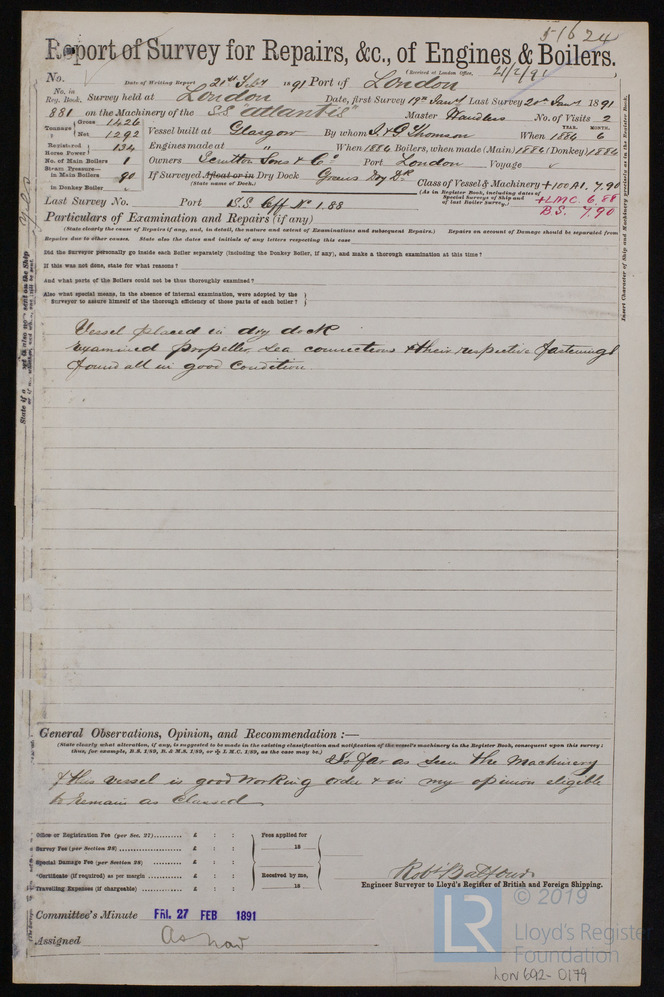 51624
Report of Survey for Repairs, &c., of Engines & Boilers.
(Received at London Office,
No. Date of Writing Report 21st 1891 Port of London
No. in Reg. Book. Survey held at London Date, first Survey 19th Jany Last Survey 21st Jany 1891
881 on the Machinery of the S.S. "Atlantis" Master No. of Visits 2
Tonnage Gross 1426 Net 1292 Vessel built at Glasgow By whom J. & G. Thomson When 1884 YEAR. MONTH. 6
Registered Horse Power 134 Engines made at " When 1884 Boilers, when made (Main) 1884 (Donkey) 1884
No. of Main Boilers 1 Owners Scrutton Sons & Co Port London Voyage
Steam Pressure— in Main Boilers 90 If Surveyed Afloat or in Dry Dock Greens Dry Dk
(State name of Dock.)
in Donkey Boiler
Class of Vessel & Machinery +100A1. 7,90
(As in Register Book, including dates of Special Surveys of Ship and of last Boiler Survey.)
+LMC 6.88
B.S. 7.90
Last Survey No. Port S.S. Eff No 1.88
Particulars of Examination and Repairs (if any)
(State clearly the cause of Repairs if any, and, in detail, the nature and extent of Examinations and subsequent Repairs.) Repairs on account of Damage should be separated from
Repairs due to other causes. State also the dates and initials of any letters respecting this case
Did the Surveyor personally go inside each Boiler separately (including the Donkey Boiler, if any), and make a thorough examination at this time?
If this was not done, state for what reasons?
And what parts of the Boilers could not be thus thoroughly examined?
Also what special means, in the absence of internal examination, were adopted by the
Surveyor to assure himself of the thorough efficiency of those parts of each boiler?
Vessel placed in dry dock
Examined propeller, sea connections & their respective fastenings
found all in good condition.
Insert Character of Ship and Machinery precisely as in the Register Book.
General Observations, Opinion, and Recommendation :—
(State clearly what alteration, if any, is suggested to be made in the existing classification and notification of the vessel's machinery in the Register Book, consequent upon this survey;
thus, for example, B.S. 1/89, B. & M.S. 1/89, or L.M.C. 1/89, as the case may be.)
So far as seen the Machinery
of this vessel is good working order & in my opinion eligible
to remain as classed
Office or Registration Fee (per Sec. 27)......... £ : :
Survey Fee (per Section 28) ............ £ : :
Special Damage Fee (per Section 28) ......... £ : :
*Certificate (if required) as per margin ...... £ : :
Travelling Expenses (if chargeable) ......... £ : :
Fees applied for
18
Received by me,
18
Robt Balfour
Engineer Surveyor to Lloyd's Register of British and Foreign Shipping.
Committee's Minute FRI. 27 FEB 1891
Assigned As now
© 2019
LR
Lloyd's Register
Foundation
LON692-0179